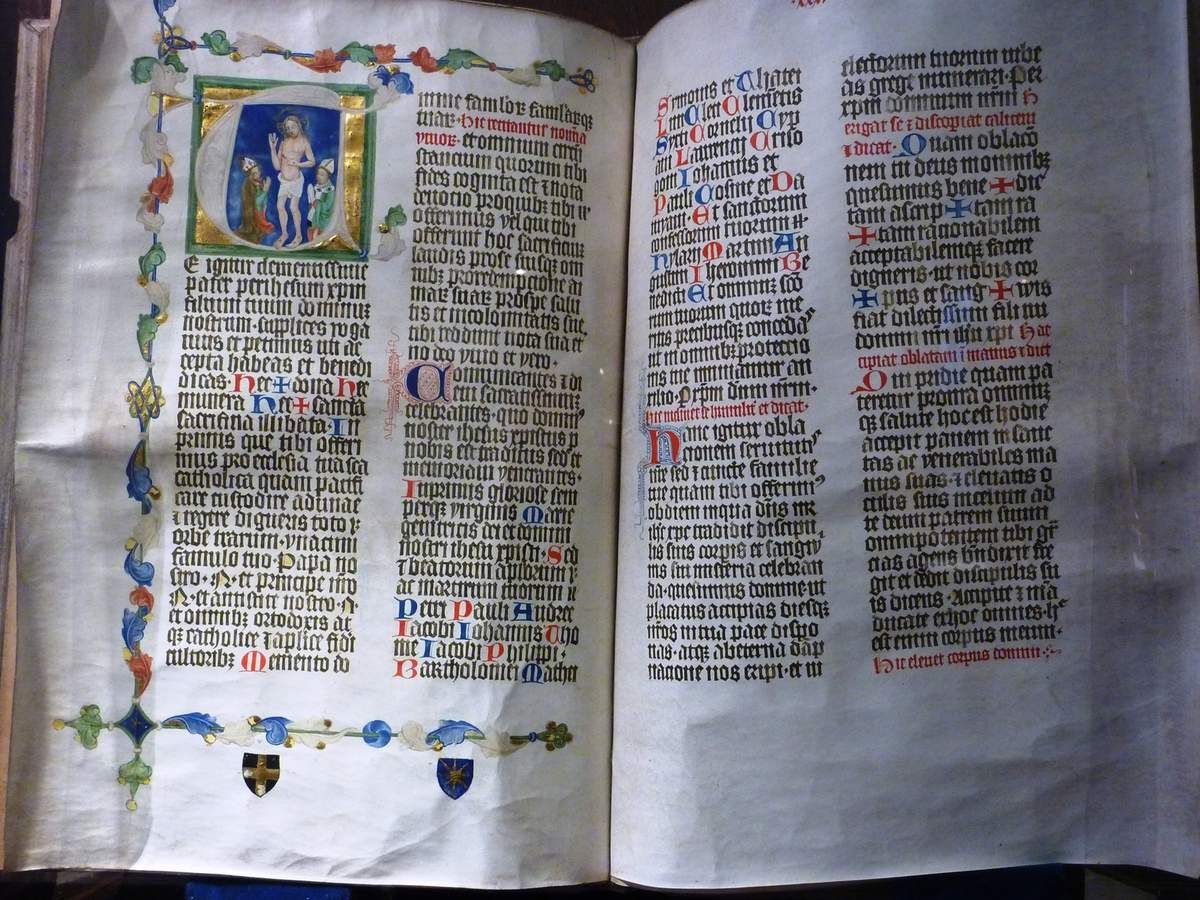 T
E igitur clementissime
pater per ihesum xpm
filium tuum dominum
nostrum. supplices roga
mus et petimus uti ac
cepta habeas et benedi
cas. Hec + dona hec
munera hec + sancta
sacrificia illibata. In
primis que tibi offeri
mus pro ecclesia tua sca
catholica quam pacifi
care custodire adunare
et regere digneris toto
orbe terrarum. vna cum
famulo tuo Papa no
stro. N. et principe nro
N. et antistite nostro. N.
et omnibus ortodoxis at
q; catholice et aplice fidi
cultoribz Memento do
mine famlor famlarq;
tuar. hic recitantur nomina
viuor. et omnium circu
stancium quorum tibi
fides cognita est et nota
deuotio pro quibz tibi
offerimus vel qui tibi
offerunt hoc sacrificium
laudis pro se suisque om
nibz pro redemptione ani
mar suar pro spe salu
tis et incolomitatis sue
tibi reddunt uota sua et
no deo viuo et vero.
Communicantes et di
em sacratissimum
celebrantes. quo dominus
noster ihesus xpistus p
nobis est traditus sed et
memoriam venerantes.
Inprimis gloriose sem
perq; virginis Marie
genitricis dei et domini
nostri ihesu xpisti. Sed
et beatorum aplorum
ac martirum tuorum
Petri Pauli Andree
Iacobi Iohannis Tho
me Iacobi Philippi.
Bartholomei Mathei
Symonis et Thatei
Lini Cleti Clementis
Syxti Cornelij Cyp
ani Laurencij Criso
goni Iohannis et
Pauli Cosme et Da
myani Et sanctorum
confessorum tuorum
Hylarij Martini Au
gustini Iheronimi Be
nedicti Et omnium sco
rum tuorum quor me
ritis precibusque concedas
ut in omnibz protectio
nis tue muniamur au
xilio. P xpm dnm nrm.
hic inclinet se humilit et dicat.
Hanc igitur obla
cionem seruitutis
nre sed et cuncte familie
tue quam tibi offerimus
ob diem in qua dns nr
ihs xpc tradidit discipu
lis suis corpis et sangwi
nis sui misteria celebran
da. quesumus domine ut
placatus accipias diesq;
nros in tua pace dispo
nas. atq; ab eterna dap
natione nos eripi. et in
electorum tuorum iube
as grege numerari. Per
xpm dominum nrm h
erigat se et discopiat calicem
et dicat. Quam oblaco
nem tu deus in omnibz
quesumus bene + dic
tam ascrip + tam ra
+ tam rationabilem
acceptabilemq; facere
digneris. ut nobis cor
+ pus et sang + wis
fiat dilectissimi filii tui
domini nri ihu xpi hic
cipiat oblatam in manus et dicat
Qui pridie quam pa
teretur pro nra omniumq;
q; salute hoc est hodie
accepit panem in sanc
tas ac venerabiles ma
nus suas. et eleuatis o
culis suis in celum ad
te deum patrem suum
omnipotentem tibi gra
cias agens bndixit fre
git et dedit discipulis su
is dicens. Accipite et ma
ducate ex hoc omnes. h
est enim corpus meum.
Hic eleuet corpus domini.